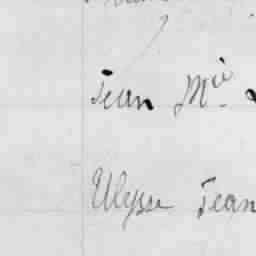 Jean Mie
Ulysse Jean